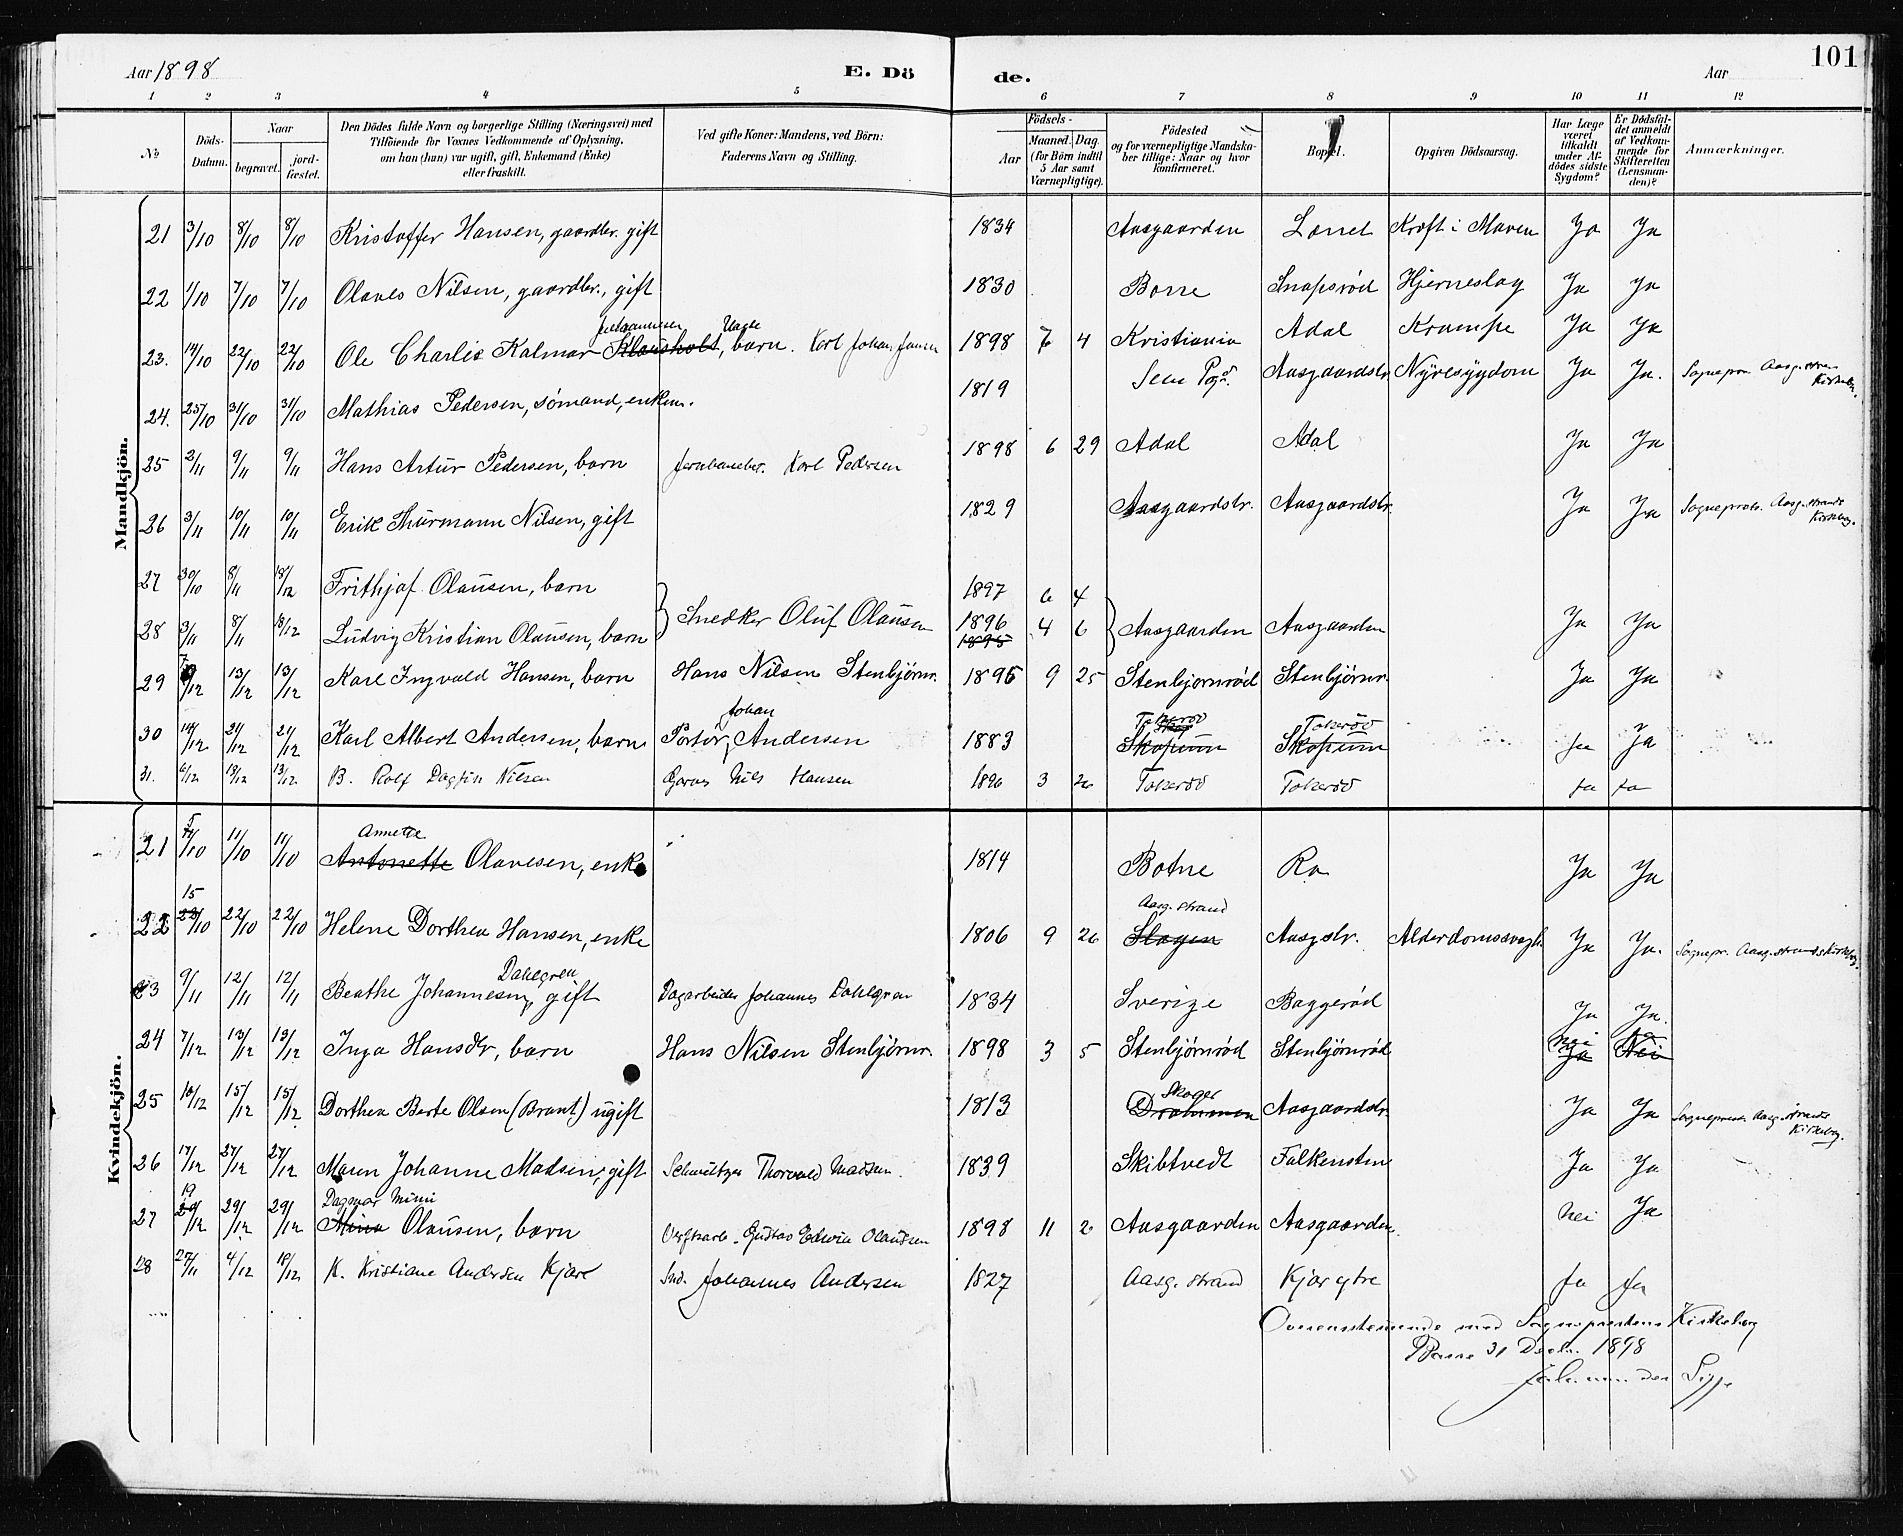 Aar 1898 E. Döde. Aar 101
1 2 3 4 5 6 7 8 9 10 11 12
No Döds-Datum. Naar begravet. jordfæstet. Den Dödes fulde Navn og borgerlige Stilling (Næringsvei) med Tilföiende for Voxnes Vedkommende af Oplysning, om han (hun) var ugift, gift, Enkemand (Enke) eller fraskilt. Ved gifte Koner: Mandens, ved Börn: Faderens Navn og Stilling. Födsels- Aar Maaned. Dag. (for Börn indtil 5 Aar samt Værnepligtige). Födested og for værnepligtige Mandskaber tillige: Naar og hvor konfirmeret. Bopæl. Opgiven Dödsaarsag. Har Læge været tilkaldt under Afdödes sidste Sygdom? Er Dödsfaldet anmeldt af Vedkommende for Skifteretten (Lensmanden)? Anmærkninger.
Mandkjön.
21 3/10 8/10 8/10 Kristoffer Hansen, gaardbr. gift 1834 Aasgaarden Kræft i Maven Ja Ja
22 1/10 7/10 7/10 Olaves Nilsen, gaardbr., gift 1830 Borre Snapsrød Hjerneslag Ja Ja
23. 14/10 22/10 22/10 Ole Charlie Kalmar Klausholt, barn. Karl Johan Jansen 1898 7 4 Kristiania Adal Krampe Ja Ja
24. 25/10 31/10 31/10 Mathias Pedersen, sømand, enkem. 1819 Sem Aasgaardstr. Nyresygdom Ja Ja.
25 2/11 9/11 9/11 Hans Artur Pedersen, barn Karl Pedersen 1898 6 29 Adal Adal Ja Ja
26 3/11 10/11 10/11 Erik Thurmann Nilsen, gift 1829 Aasgaardstr. Aasgaardstr. Ja Ja Sogneprotr. Aasg.strands Kirkebog.
27 30/10 8/11 18/12 Frithjof Olausen, barn 1897 6 4
28 3/11 8/11 18/12 Ludvig Kristian Olausen, barn Snedker Oluf Olausen 1896 1895 4 6 Aasgaarden Aasgaarden Ja Ja
29 7/12 13/12 13/12 Karl Ingvald Hansen, barn Hans Nilsen Stenbjörnr. 1895 9 25 Stenbjørnrød Stenbjörnr. Ja Ja
30 14/12 21/12 21/12 Karl Albert Andersen, barn Johan Andersen 1883 Tokerød Skopum Tokerød Skopum Ja Ja
31. 6/12 13/12 13/12 B. Rolf Dagfin Nilsen Nils Hansen 1896 3 26 Tokerød Tokerød Ja Ja
Kvindekjön.
21 11/10 11/10 Annette Antonette Olavesen, enke 1814 Botne Ra Ja Ja
22 15 22/10 22/10 22/10 Helene Dorthea Hansen, enke 1806 9 26 Aasg. strand Slagen Aasgstr. Alderdomssvagh. Ja Ja. Sognepr. Aasg.strands Kirkebog.
23 9/11 12/11 12/11 Beathe Johannesen, Dahlgren gift Dagarbeider Johannes Dahlgren 1834 Sverige Baggerød Ja Ja.
24 7/12 13/12 13/12 Inga Hansdtr, barn Hans Nilsen Stenbjörnr. 1898 3 5 Stenbjørnrød Stenbjørnrød Nei Ja Nei
25 10/12 15/12 15/12 Dorthea Berte Olsen (Brant) ugift 1813 Skoger Drammen Aasgaardstr. Ja Ja Aasg.strands Kirkebog.
26 17/12 27/12 27/12 Maren Johanne Madsen, gift Thorvald Madsen. 1839 Skibtvedt Falkensten Ja Ja
27 19 20/12 29/12 29/12 Dagmar Mimi Mina Olausen, barn Gustav Edvin Olaussen 1898 11 2 Aasgaarden Aasgaarden. Nei Ja
28 27/11 4/12 18/12 K. Kristiane Andersen Kjær Johannes Andersen 1827 Aasg. strand Kjær ytre Ja Ja
Overensstemmende med Sogneprestens Kirkebog
Borre 31 Decbr. 1898